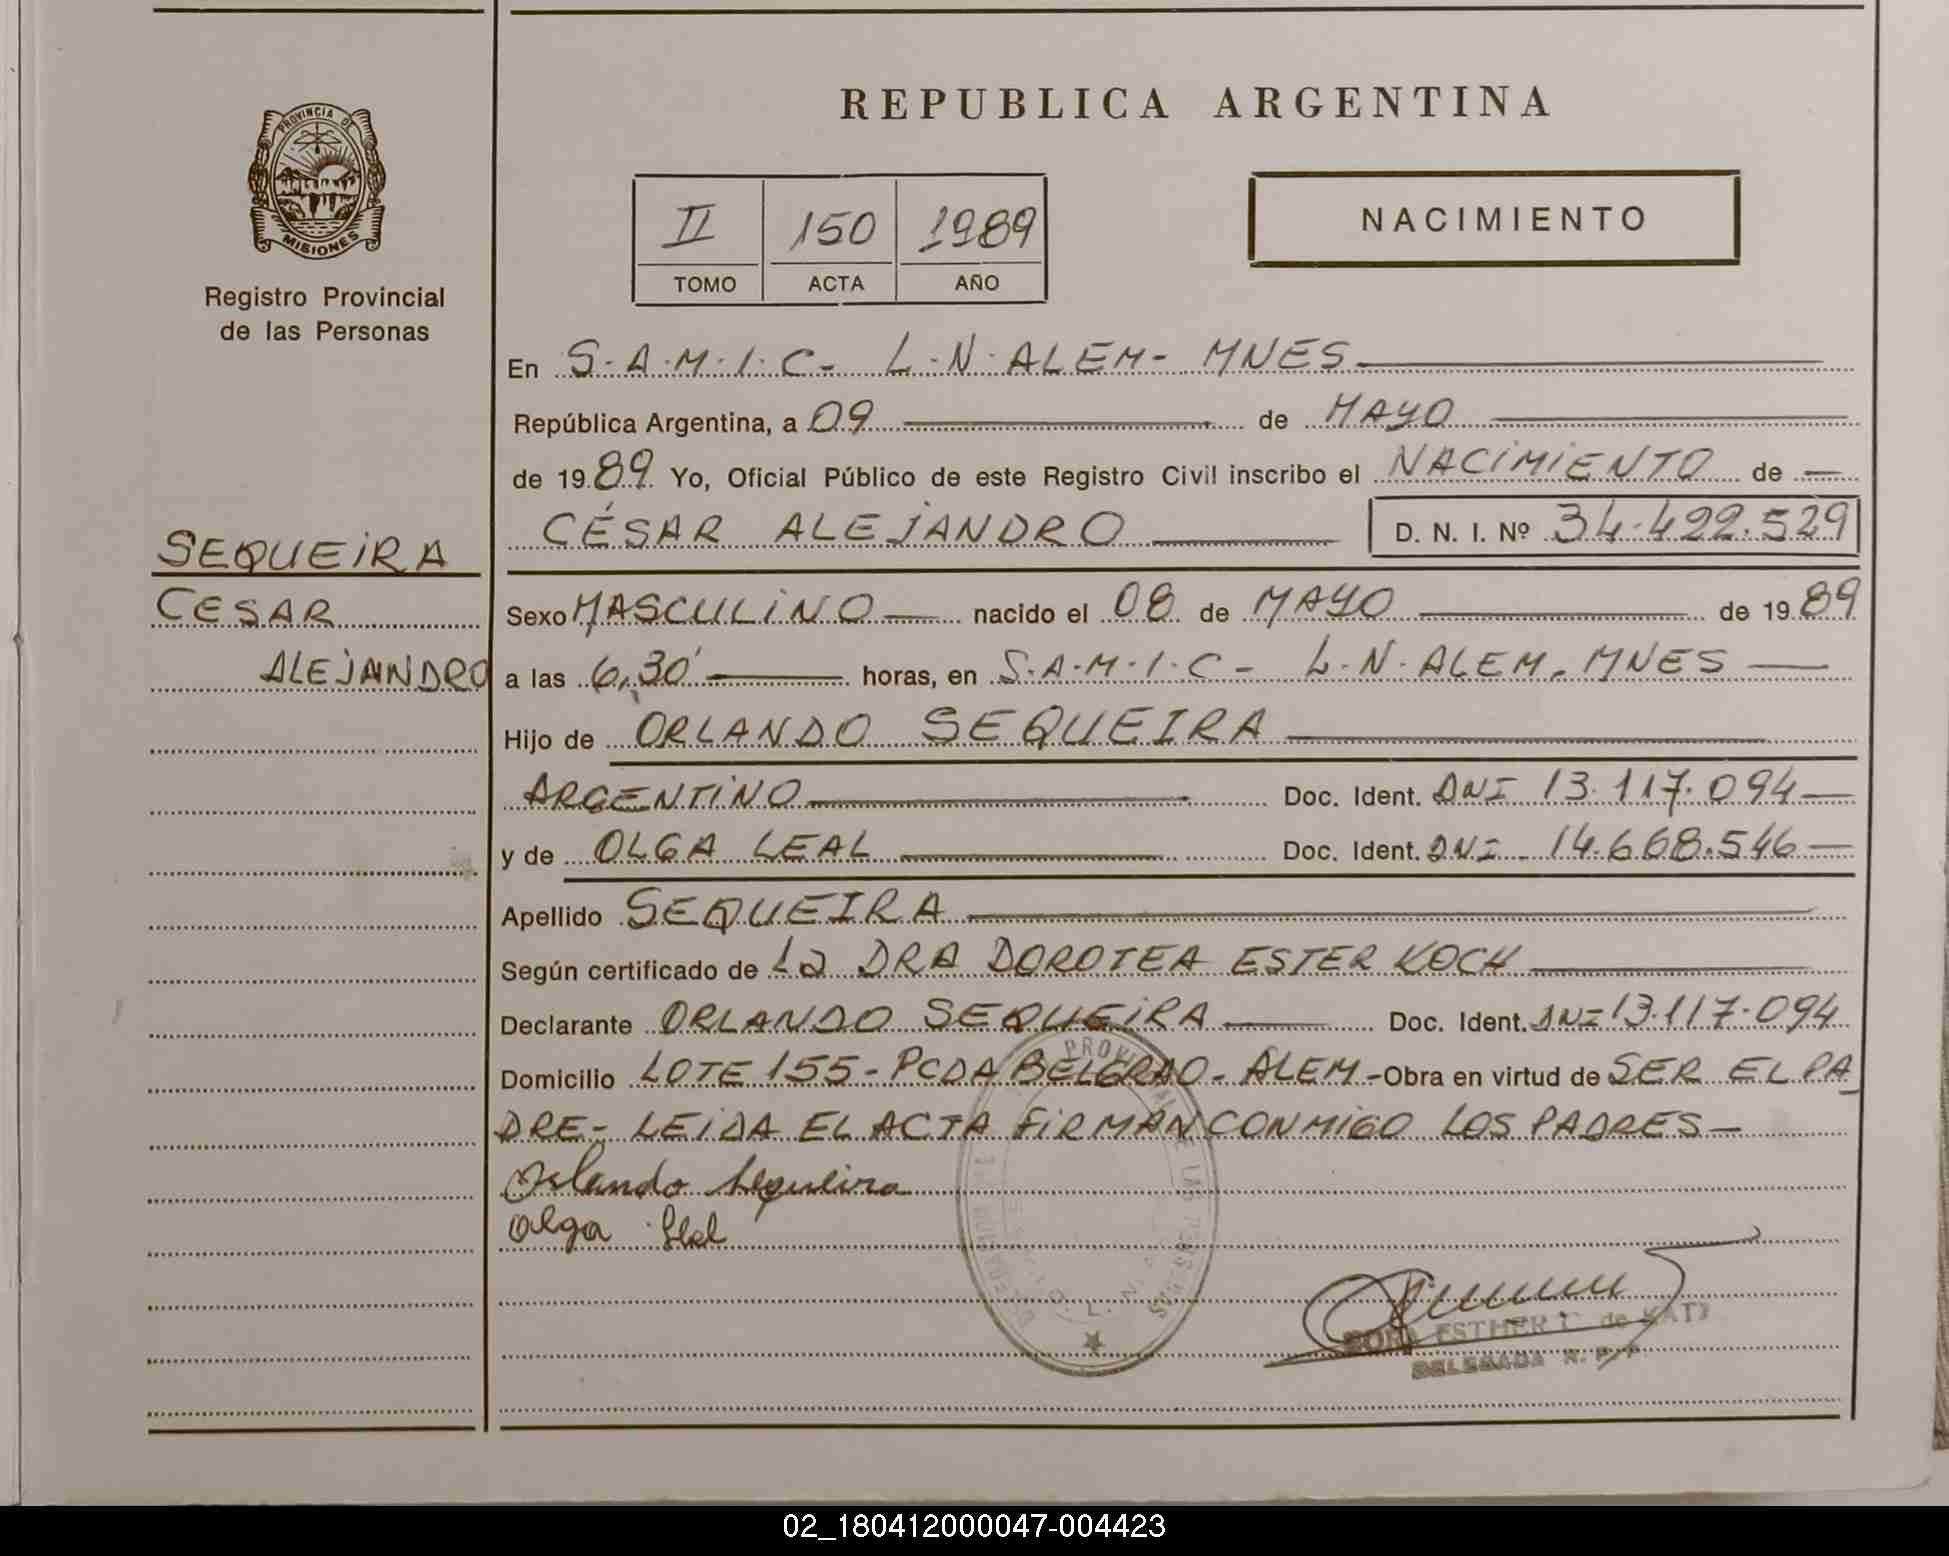 REPUBLICA ARGENTINA
PROVINCIA DE
MISIONES
Registro Provincial
de las Personas
II 150 1989
TOMO ACTA AÑO
NACIMIENTO
SEQUEIRA
CESAR
ALEJANDRO
En S.A.M.I.C- L.N.ALEM- MNES
República Argentina, a 09 de MAYO
de 1989 Yo, Oficial Público de este Registro Civil inscribo el NACIMIENTO de
CÉSAR ALEJANDRO D. N. I. Nº 34.422.529
Sexo MASCULINO nacido el 08 de MAYO de 1989
a las 6,30' horas, en S.A.M.I.C- L.N.ALEM. MNES
Hijo de ORLANDO SEQUEIRA
ARGENTINO Doc. Ident. DNI 13.117.094
y de OLGA LEAL Doc. Ident. DNI 14.668.546
Apellido SEQUEIRA
Según certificado de La DRA DOROTEA ESTER KOCH
Declarante ORLANDO SEQUEIRA Doc. Ident. DNI 13.117.094
Domicilio LOTE 155-PCDA BELGRAO-ALEM-Obra en virtud de SER EL PA
DRE- LEIDA EL ACTA FIRMAN CONMIGO LOS PADRES-
Orlando Sequeira
Olga Leal
ESTHER de
DELEGADA R. P. P.
02_180412000047-004423